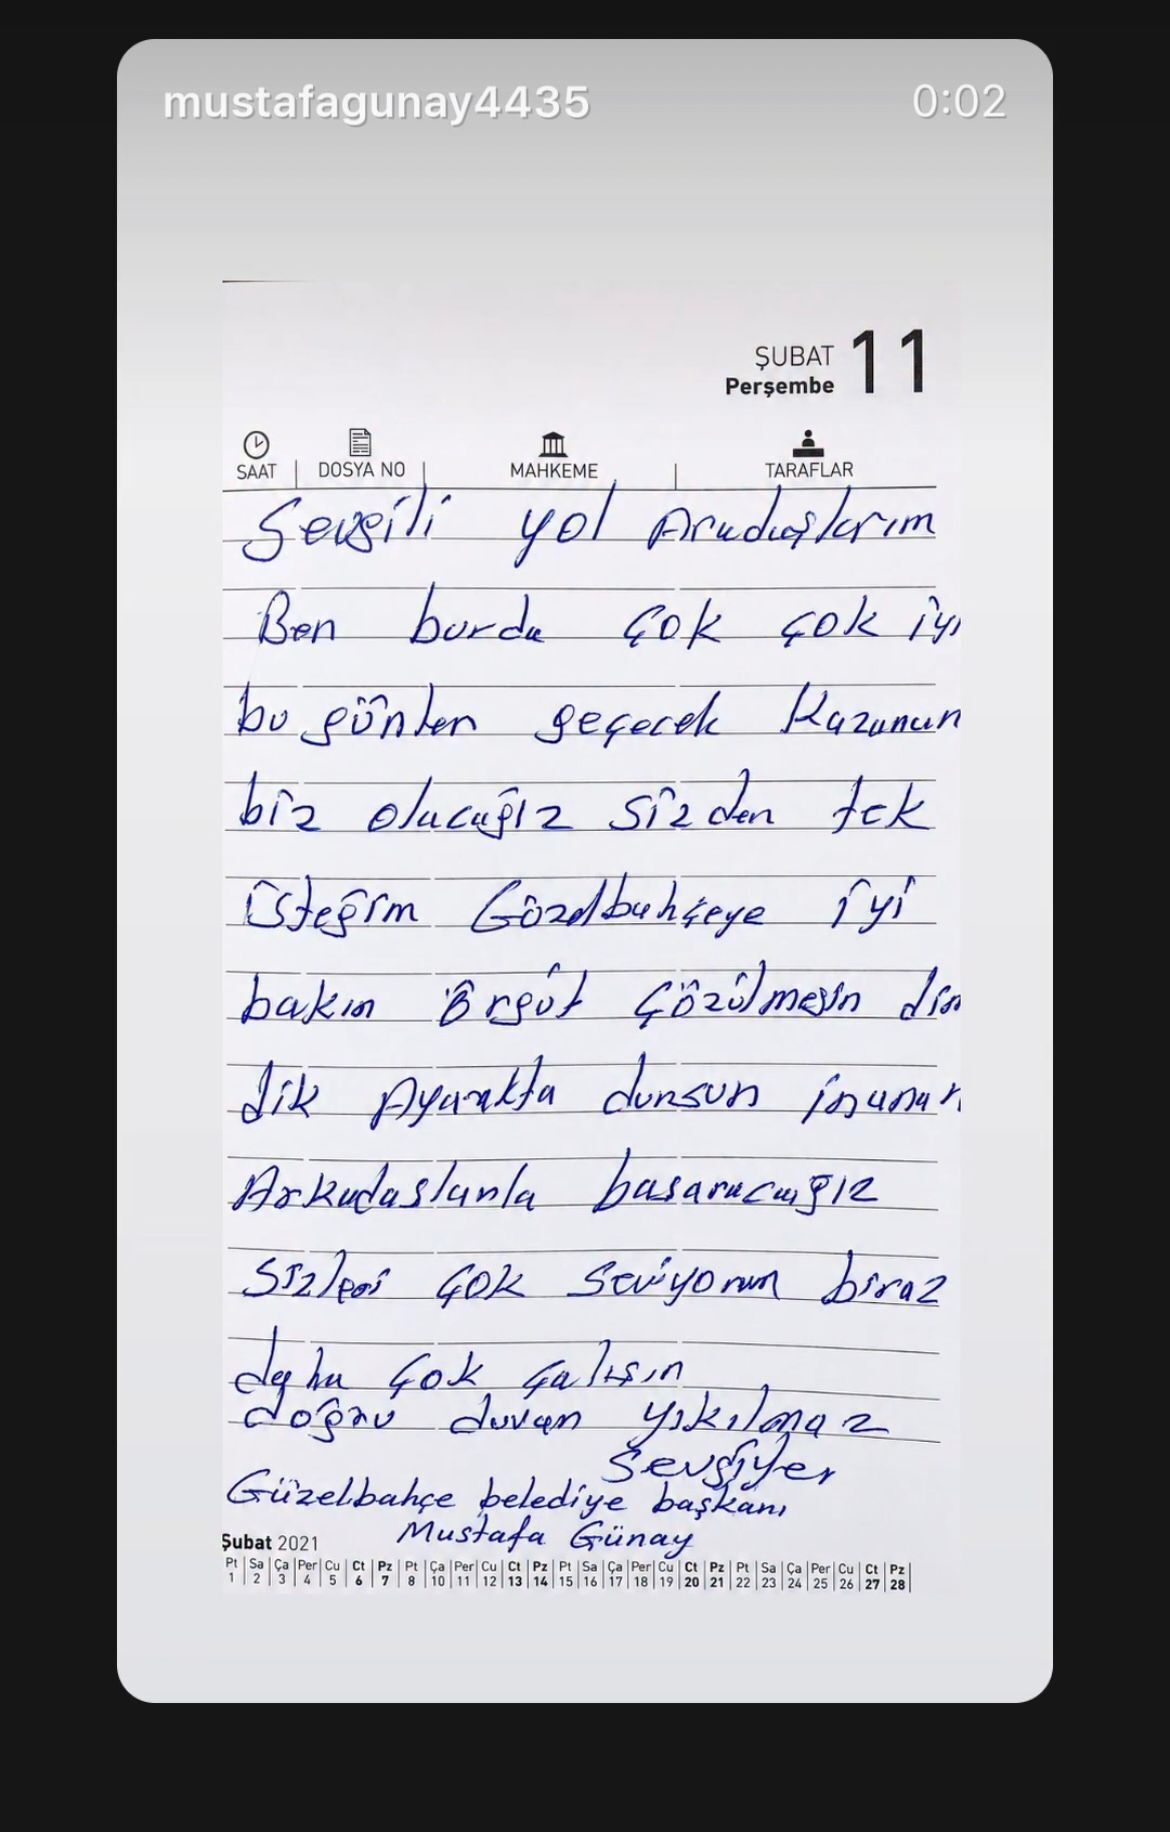 mustafagunay4435 0:02
ŞUBAT 11
Perşembe
SAAT DOSYA NO MAHKEME TARAFLAR
Sevgili yol Arkadaşlarım
Ben burda çok çok iyi
bu günler geçecek Kazanan
biz olacağız sizden tek
isteğim Güzelbahçeye iyi
bakın Örgüt çözülmesin dim
dik Ayakta dursun inanan
Arkadaslarla basaracağız
Sizleri çok Seviyorum biraz
daha çok çalışın
doğru duvar yıkılmaz
Sevgiler
Güzelbahçe belediye başkanı
Mustafa Günay
Şubat 2021
Pt Sa Ça Per Cu Ct Pz Pt Ça Per Cu Ct Pz Pt Sa Ça Per Cu Ct Pz Pt Sa Ça Per Cu Ct Pz
1 2 3 4 5 6 7 8 10 11 12 13 14 15 16 17 18 19 20 21 22 23 24 25 26 27 28